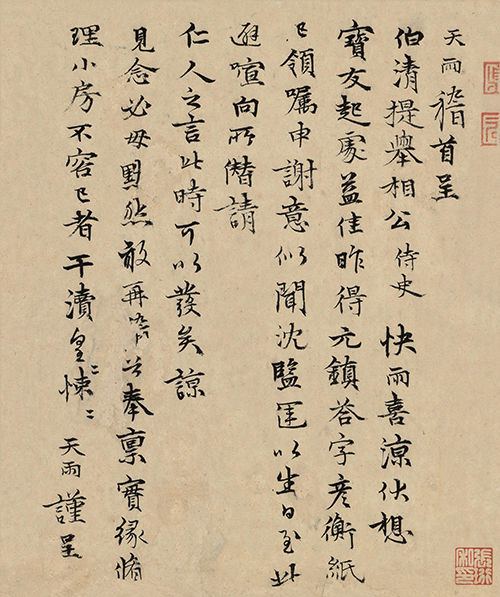 天雨稽首呈
伯清提舉相公侍史快雨喜涼伏想
寶友起處益佳昨得元鎮答字彥衡紙
已領囑申謝意似聞沈監運以生日至此
避喧向所僭請
仁人之言此時可以發矣諒
見念必毋默然敢再奉稟寶緣脩
理小房不容已者干瀆皇〻悚〻天雨謹呈
張珩私印